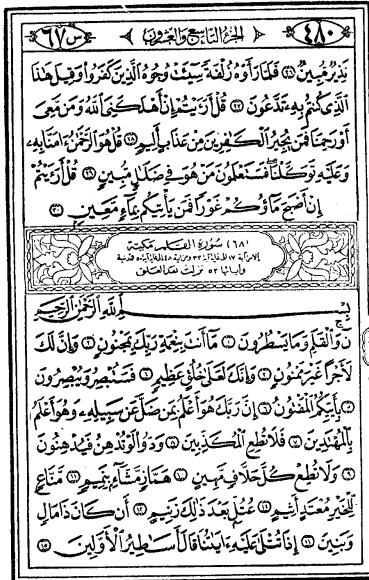 س ٦٧ الجزء التاسع والعشرون ٤٨٠
نَذِيرٌ مُّبِينٌ ٢٦ فَلَمَّا رَأَوْهُ زُلْفَةً سِيٓـَٔتْ وُجُوهُ ٱلَّذِينَ كَفَرُوا۟ وَقِيلَ هَٰذَا
ٱلَّذِى كُنتُم بِهِۦ تَدَّعُونَ ٢٧ قُلْ أَرَءَيْتُمْ إِنْ أَهْلَكَنِىَ ٱللَّهُ وَمَن مَّعِىَ
أَوْ رَحِمَنَا فَمَن يُجِيرُ ٱلْكَٰفِرِينَ مِنْ عَذَابٍ أَلِيمٍ ٢٨ قُلْ هُوَ ٱلرَّحْمَٰنُ ءَامَنَّا بِهِۦ
وَعَلَيْهِ تَوَكَّلْنَا فَسَتَعْلَمُونَ مَنْ هُوَ فِى ضَلَٰلٍ مُّبِينٍ ٢٩ قُلْ أَرَءَيْتُمْ
إِنْ أَصْبَحَ مَآؤُكُمْ غَوْرًا فَمَن يَأْتِيكُم بِمَآءٍ مَّعِينٍ ٣٠
(٦٨) سورة القلم مكية
إلا من آية ١٧ إلى غاية آية ٣٣ ومن آية ٤٨ إلى غاية آية ٥٠ فمدنية
وآياتها ٥٢ نزلت بعد العلق
بِسْمِ ٱللَّهِ ٱلرَّحْمَٰنِ ٱلرَّحِيمِ
نٓ وَٱلْقَلَمِ وَمَا يَسْطُرُونَ ١ مَآ أَنتَ بِنِعْمَةِ رَبِّكَ بِمَجْنُونٍ ٢ وَإِنَّ لَكَ
لَأَجْرًا غَيْرَ مَمْنُونٍ ٣ وَإِنَّكَ لَعَلَىٰ خُلُقٍ عَظِيمٍ ٤ فَسَتُبْصِرُ وَيُبْصِرُونَ
٥ بِأَييِّكُمُ ٱلْمَفْتُونُ ٦ إِنَّ رَبَّكَ هُوَ أَعْلَمُ بِمَن ضَلَّ عَن سَبِيلِهِۦ وَهُوَ أَعْلَمُ
بِٱلْمُهْتَدِينَ ٧ فَلَا تُطِعِ ٱلْمُكَذِّبِينَ ٨ وَدُّوا۟ لَوْ تُدْهِنُ فَيُدْهِنُونَ
٩ وَلَا تُطِعْ كُلَّ حَلَّافٍ مَّهِينٍ ١٠ هَمَّازٍ مَّشَّآءٍۭ بِنَمِيمٍ ١١ مَّنَّاعٍ
لِّلْخَيْرِ مُعْتَدٍ أَثِيمٍ ١٢ عُتُلٍّۭ بَعْدَ ذَٰلِكَ زَنِيمٍ ١٣ أَن كَانَ ذَا مَالٍ
وَبَنِينَ ١٤ إِذَا تُتْلَىٰ عَلَيْهِ ءَايَٰتُنَا قَالَ أَسَٰطِيرُ ٱلْأَوَّلِينَ ١٥